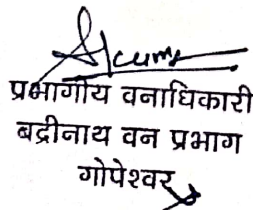 प्रभागीय वनाधिकारी
बद्रीनाथ वन प्रभाग
गोपेश्वर